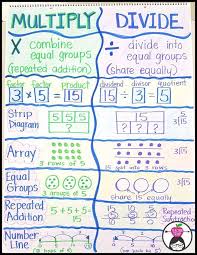 MULTIPLY DIVIDE
× combine equal groups (repeated addition)
÷ divide into equal groups (share equally)
factor factor product
3 × 5 = 15
dividend divisor quotient
15 ÷ 3 = 5
Strip Diagram
5 5 5
15
15
? ? ?
3/15
Array
3 rows of 5
15 into 3 rows
3/15
Equal Groups
3 groups of 5
share 15 equally
3/15
Repeated Addition
5+5+5=
15
Repeated Subtraction
Number Line